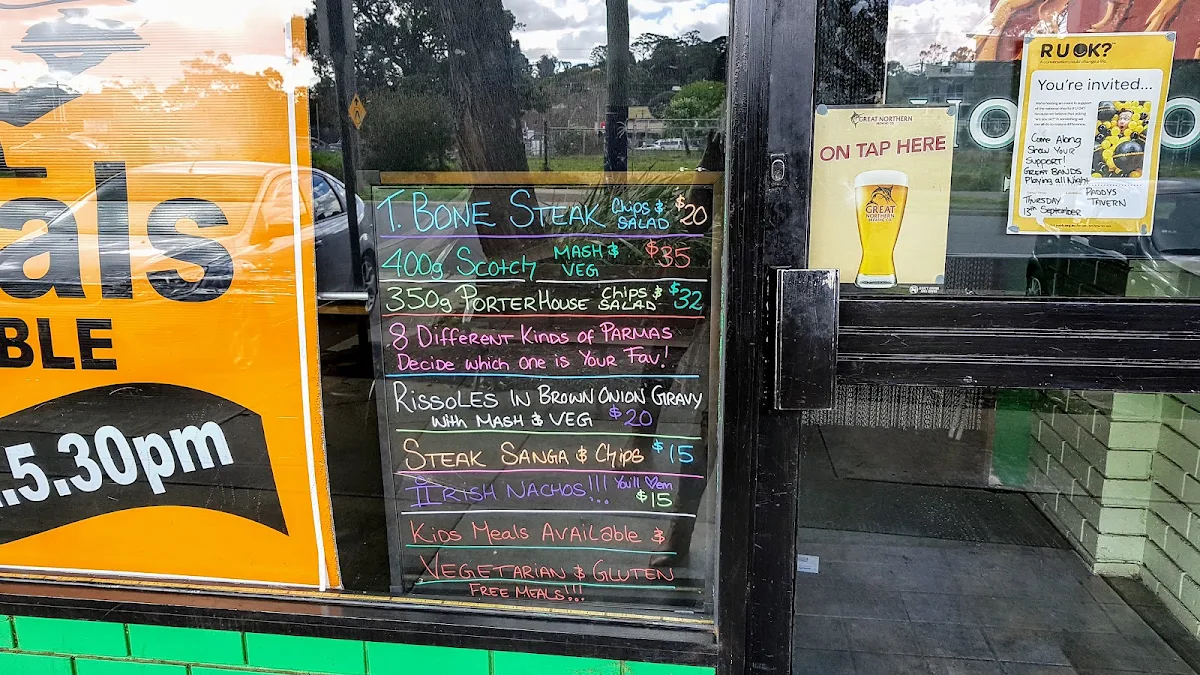 als
BLE
.5.30pm
T. BONE STEAK CHIPS & SALAD $20
400g SCOTCH MASH & VEG $35
350g PORTERHOUSE CHIPS & SALAD $32
8 DIFFERENT KINDS OF PARMAS
DECIDE WHICH ONE IS YOUR FAV!
RISSOLES IN BROWN ONION GRAVY
WITH MASH & VEG $20
STEAK SANGA & CHIPS $15
IRISH NACHOS!!! You'll ♡ em
$15
KIDS MEALS AVAILABLE &
VEGETARIAN & GLUTEN
FREE MEALS!!!
GREAT NORTHERN
BREWING CO.
ON TAP HERE
GREAT
NORTHERN
BREWING CO.
R U OK?
A conversation could change a life.
You're invited...
Come Along
Show Your
Support!
GREAT BANDS
Playing all Night
THURSDAY
13th September
PADDYS
TAVERN